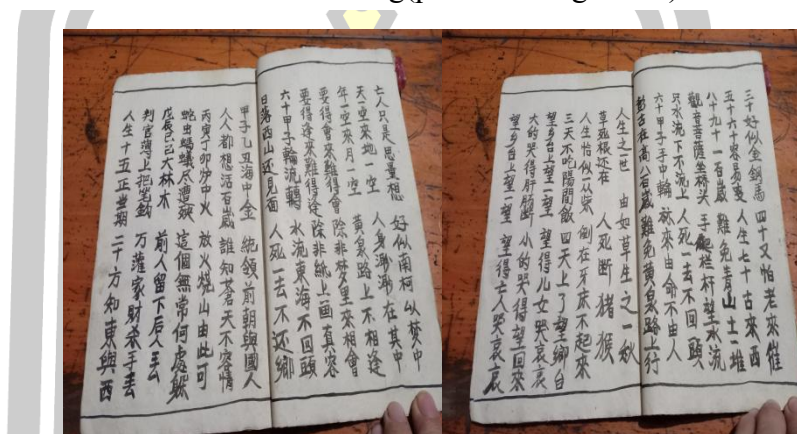 亡人只是思量想 好似南柯以梦中
天一空來地一空 人身渺渺在其中
年一空來月一空 黄泉路上不相逢
要得會來難得會 除非梦里來相會
要得逢來難得逢 除非紙上画真容
六十甲子輪流轉 水流東海不回頭
日落西山还見面 人死一去不还鄉
甲子乙丑海中金 統領前朝與國人
人人都想活百歲 誰知蒼天不容情
丙寅丁卯炉中火 放火燒山由此可
蛇虫螞蟻尽遭殃 這個無常何處躲
戊辰己巳大林木 前人留下后人丢
判官簿上把笔 万灌家財杀手丢
人生十五正当期 二十方知東與西
三十好似金鋼馬 四十又怕老來催
五十六十容易 人生七十古來西
八十九十一百歲 難免青山土一堆
觀音菩薩坐桥头 手爬栏杆望水流
只水流下不流上 人死一去不回頭
六十甲子手中輪 來由命不由人
彭古在高八百歲 難免黄泉路上行
人生之一世 由如草生之一秋
草死根还在 人死断猪猴
人生恰似一从柴 倒在牙床不起來
三天不吃陽間飯 四天上了望鄉台
望乡台上望一望 望得儿女哭哀哀
大的哭得肝腸断 小的哭得望回來
望乡台上望一望 望得亡人哭哀哀